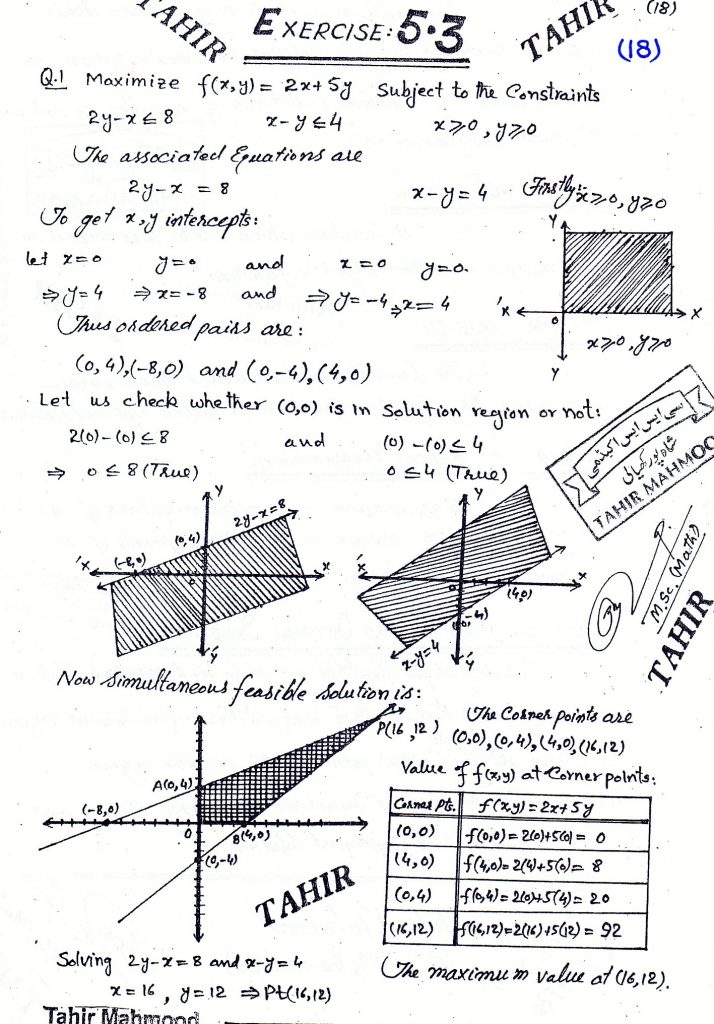 TAHIR
EXERCISE: 5.3
TAHIR
(18)
(18)
Q.1 Maximize f(x,y) = 2x+5y subject to the Constraints
2y-x ≤ 8 x-y ≤ 4 x≥0, y≥0
The associated Equations are
2y-x = 8 x-y = 4 Firstly:- x≥0, y≥0
To get x,y intercepts:
let x=0 y=0 and x=0 y=0.
⇒ y=4 ⇒ x=-8 and ⇒ y=-4 ⇒ x=4
Thus ordered pairs are:
(0,4),(-8,0) and (0,-4),(4,0)
Y
'X O X
Y
x≥0, y≥0
Let us check whether (0,0) is in solution region or not:
2(0)-(0) ≤ 8 and (0)-(0) ≤ 4
⇒ 0 ≤ 8 (True) 0 ≤ 4 (True)
سی ایس ایس اکیڈمی
TAHIR MAHMOO
M.Sc. (Math)
TAHIR
Y
2y-x=8
(0,4)
(-8,0)
'X O X
'Y
Y
'X O X
(4,0)
(0,-4)
x-y=4
'Y
Now simultaneous feasible solution is:
P(16,12)
A(0,4)
(-8,0)
O B(4,0)
(0,-4)
TAHIR
The Corner points are
(0,0),(0,4),(4,0),(16,12)
Value of f(x,y) at Corner points:
Corner Pts. f(x,y)=2x+5y
(0,0) f(0,0)=2(0)+5(0)= 0
(4,0) f(4,0)=2(4)+5(0)= 8
(0,4) f(0,4)=2(0)+5(4)= 20
(16,12) f(16,12)=2(16)+5(12)= 92
Solving 2y-x=8 and x-y=4
x=16, y=12 ⇒ Pt(16,12)
The maximum value at (16,12).
Tahir Mahmood